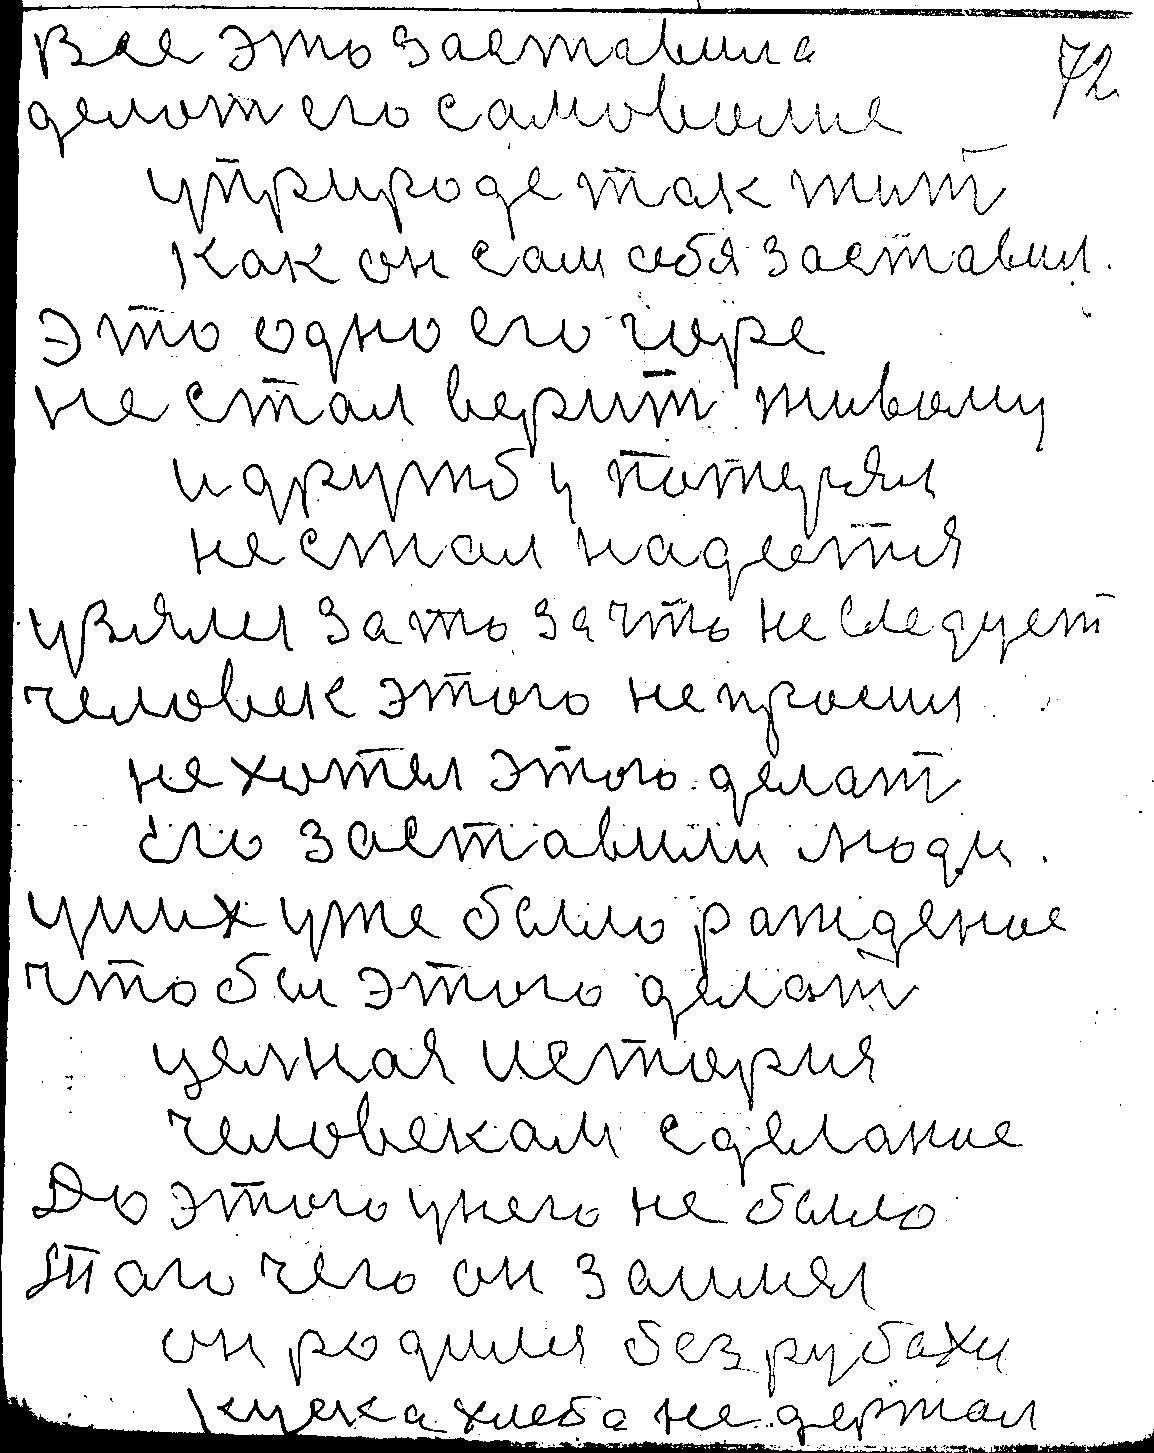 72
Все это заставила
делат его самоволие
у природе так жит
как он сам себя заставил.
Это одно его горе
не стал верит живому
и дружбу потерял
не стал надеется
увялся за то за что не следует
человек этого не просил
не хотел этого делат
его заставили люди.
у них уже было рождение
чтобы этого делат
целная история
человекам сделание
До этого у него не было
того чего он занимал
он родился без рубахи
куска хлеба не держал